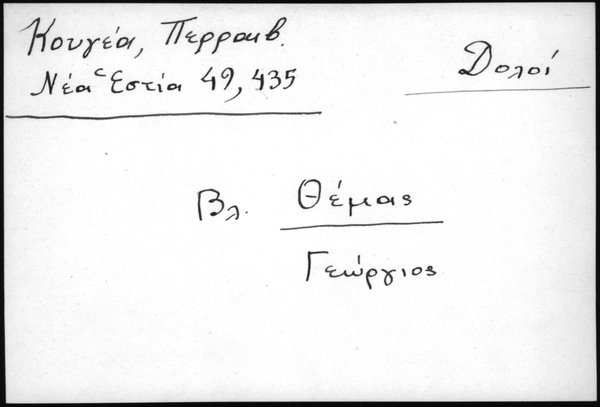 Κουγέα, Περραιβ.
Νέα Ἑστία 49, 435
Δολοί
Βλ. Θέμας
Γεώργιος